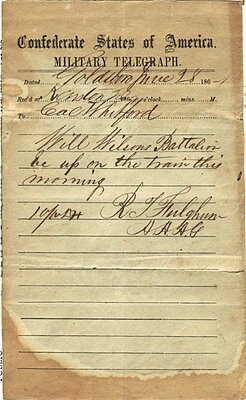 Confederate States of America.
MILITARY TELEGRAPH.
Dated Goldsboro June 28 186
Rec'd at Kinston o'clock, mins. M.
To Col Whitford
Will Wilsons Battalion
be up on the train this
morning
R F Fulghum
A A A G